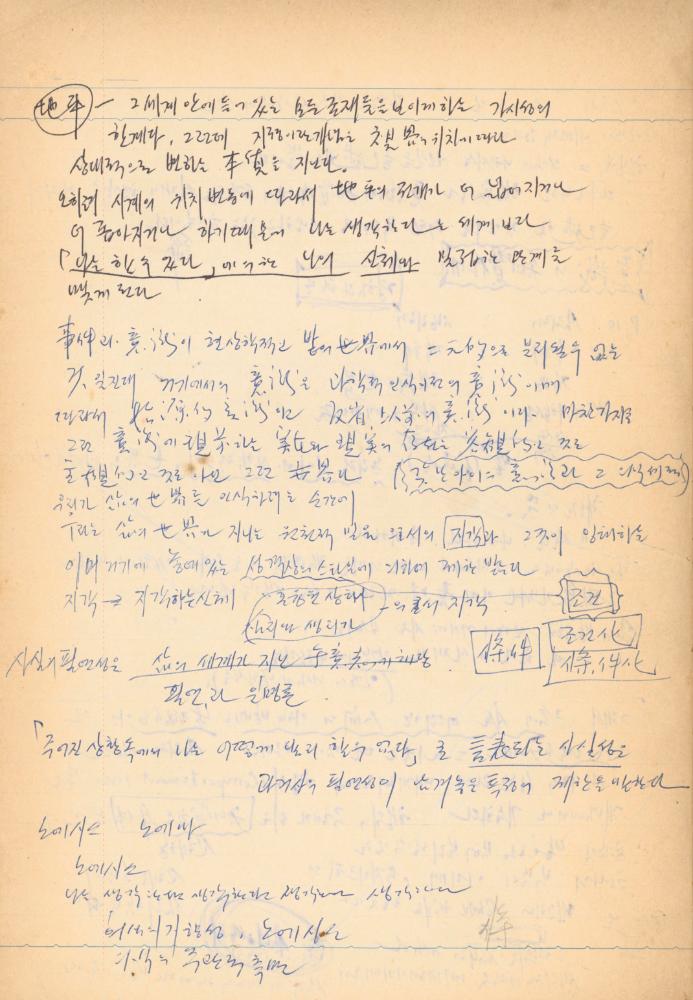 地平 — 그 세계 안에 들어 있는 모든 존재들을 보이게 하는 가시성의
한계다. 그런데 지평이란 개념은 視界의 위치에 따라
상대적으로 변하는 本質을 지닌다.
오히려 시계의 위치변동에 따라서 地平의 전개가 더 넓어지거나
더 좁아지거나 하기 때문에 나는 생각한다 는 세계보다
「나는 할 수 있다」에 의한 나의 신체와 밀접한 관계를
맺게 된다
事件과 意識이 현상학적인 삶의 世界에서 二元的으로 분리될 수 없는
것일진대 거기에서의 意識은 과학적 인식 이전의 意識이며
따라서 始源的 意識이고 反省 以前의 意識이다. 마찬가지로
그런 意識에 現前하는 실재와 現実의 客観的인 것도
主観的인 것도 아닌 그런 世界다 (갓난아이의 意識과 그 의식세계)
우리가 삶의 世界를 인식하려는 순간에
우리는 삶의 世界가 지니는 원천적 믿음으로서의 지각과 그것이 잉태하는
이미 거기에 놓여 있는 성격상의 스타일에 의하여 제한받는다
지각 → 지각하는 신체 혼융된 상태 —으로서 지각
심리와 생리가
조건
條件
조건사
條件史
사실의 필연성은 삶의 세계가 지닌
필연과 운명론
「주어진 상황 속에서 나는 어떻게 달리 할 수 없다」로 言表되는 사실성은
과거사의 필연성이 남겨놓은 특정의 제한을 말한다
노에시스 노에마
노에시스
나는 생각한다 생각한다고 생각
의식의 지향성. 노에시스
의식의 주관적 측면